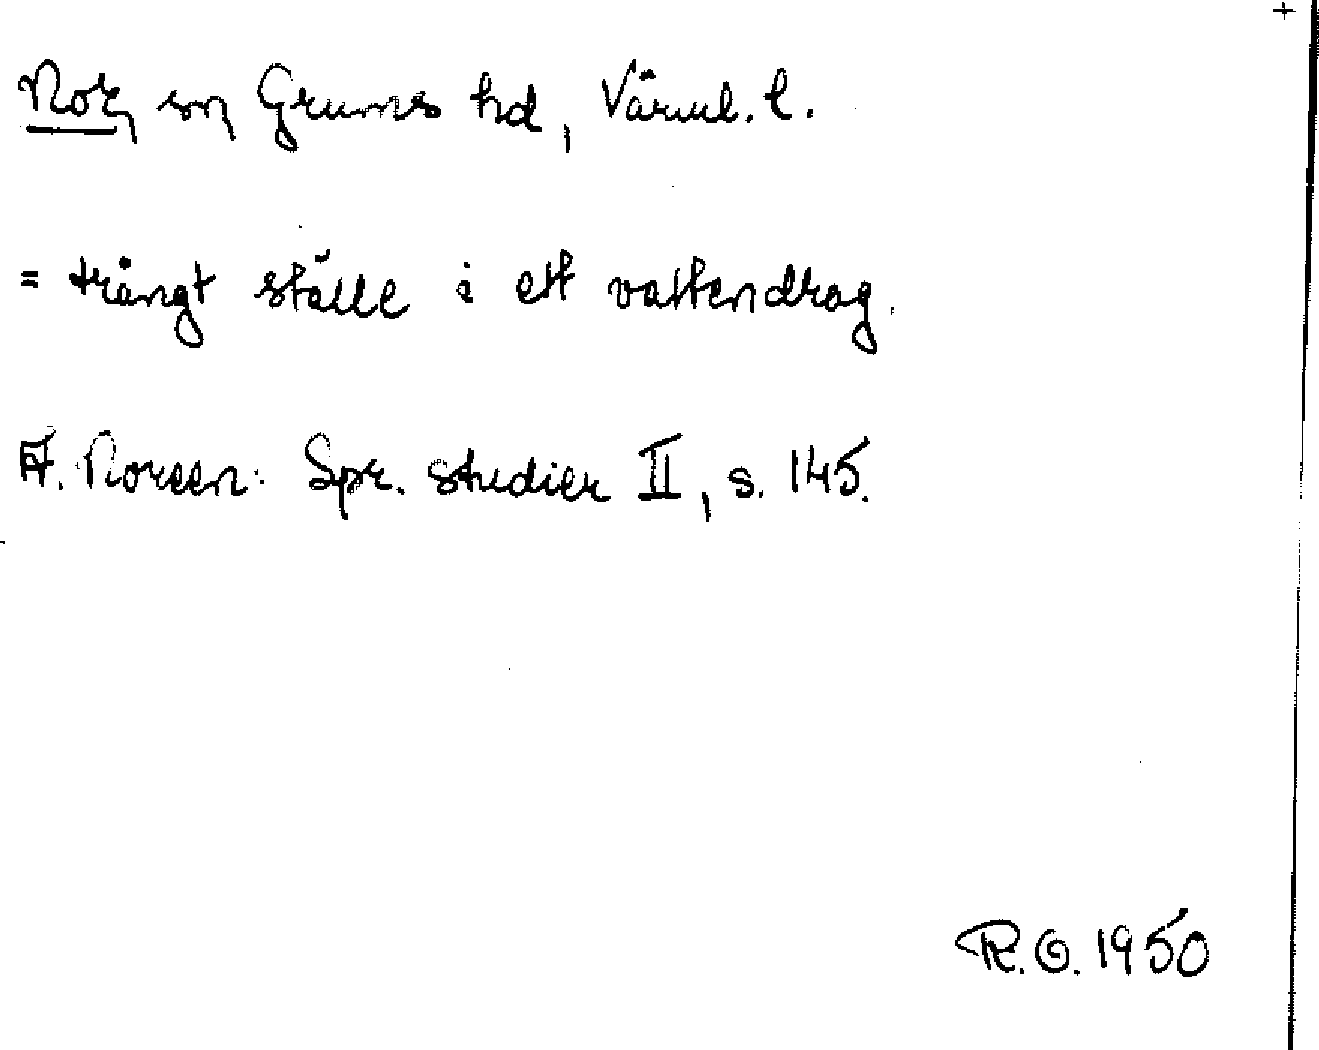 +
Nor, sn Grums hd, Värml. l.
= trångt ställe i ett vattendrag.
A. Noreen: Spr. studier II, s. 145.
R.O. 1950